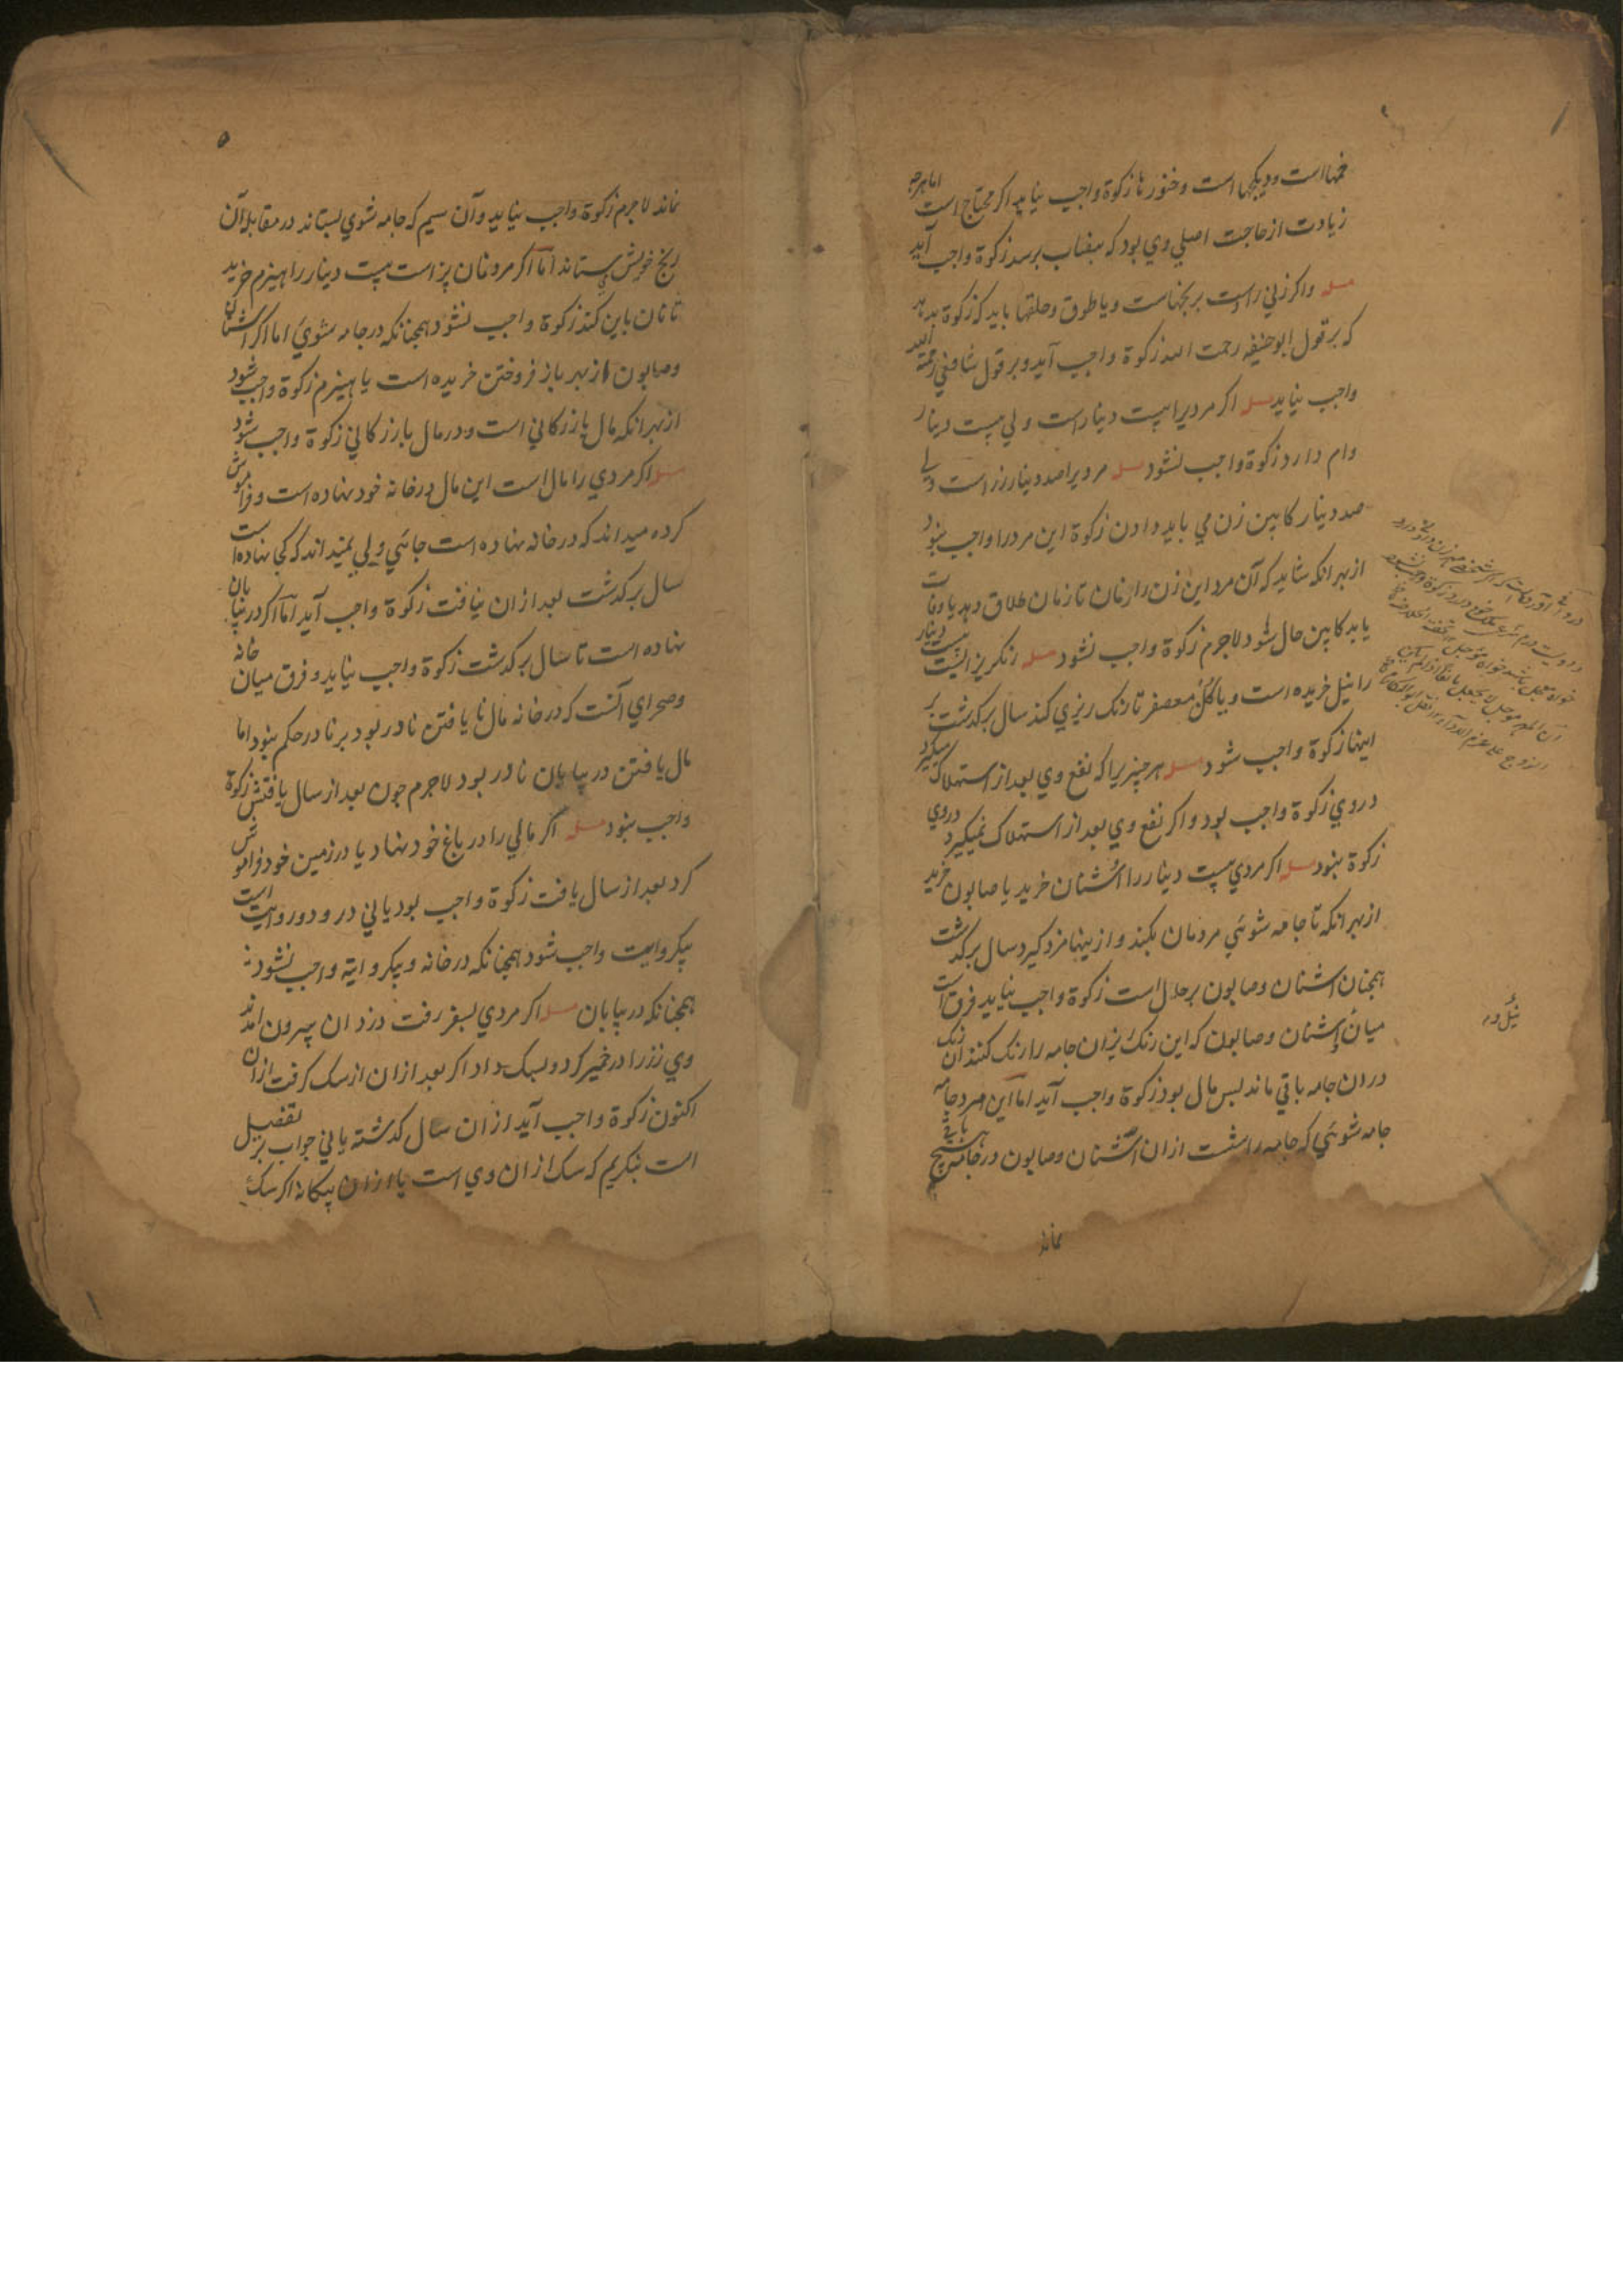 خمها است و دیکچها است و خنورها زکوة واجب نیاید اکر محتاج است اما هرچه
زیادت از حاجت اصلی وی بود که بنصاب برسد زکوة واجب آید
مسله واکر زنی راست برنجنهاست ویا طوق وحلقها باید که زکوة بدهد
که بر قول ابوحنیفه رحمت الله زکوة واجب آید وبر قول شافعی رحمة الله
واجب نیاید مسله اکر مردیرا بیست دینار است ولی بیست دینار
وام دارد زکوة واجب نشود مسله مردیرا صد دینار زر است ولی
صد دینار کابین زن می باید دادن زکوة این مرد را واجب بود
از بهر انکه شاید که آن مرد این زن را زمان تا زمان طلاق دهد یا وفات
یابد کابین حال شود لاجرم زکوة واجب نشود مسله رنکریز است بیست دینار
را نیل خریده است ویا کل معصفر تا رنک ریزی کند سال بر کذشت بر
اینها زکوة واجب شود مسله هر چیزیرا که نفع وی بعد از استهلاک میکیرد
در وی زکوة واجب بود و اکر نفع وی بعد از استهلاک نمیکیرد در وی
زکوة نبود مسله اکر مردی بیست دینار را اشنان خرید یا صابون خرید
از بهر انکه تا جامه شوئی مردمان بکند و از ینها مزد کیرد سال بر کذشت
همچنان اشنان و صابون بر حال است زکوة واجب نیاید فرق است
میان اشنان و صابون که این رنک ریزان جامه را رنک کنند آن رنک
در ان جامه باقی ماند پس مال بود زکوة واجب آید اما این مرد جامه
جامه شوئی که جامه را شست از ان اشنان و صابون در جامه هیچ باقی
نماند
نیل وره
۵
نماند لاجرم زکوة واجب نیاید و آن سیم که جامه شوی بستاند در مقابله آن
رنج خویش می ستاند اما اکر مرد نان پز است بیست دینار را هیزم خرید
تا نان باین کند زکوة واجب نشود همچنانکه در جامه شوی اما اکر اشنان
وصابون از بهر باز فروختن خریده است یا هیزم زکوة واجب شود
از بهر انکه مال بازرکانی است و در مال بازرکانی زکوة واجب شود
مسله اکر مردی را مال است این مال در خانه خود نهاده است و فراموش
کرده میداند که در خانه نهاده است جائی ولی نمیداند که کی نهاده است
سال بر کذشت بعد از ان نیافت زکوة واجب آید اما اکر در بیابان
نهاده است تا سال بر کذشت زکوة واجب نیاید و فرق میان خانه
وصحرای آنست که در خانه مال نا یافتن نادر بود بر نادر حکم نبود اما
مال یافتن در بیابان نادر بود لاجرم چون بعد از سال یافتش زکوة
واجب نبود مسله اکر مالی را در باغ خود نهاد یا در زمین خود فراموش
کرد بعد از سال یافت زکوة واجب بود یا نی در و دو روایت است
بیکروایت واجب شود همچنانکه در خانه و بیکروایة واجب نشود
همچنانکه در بیابان مسله اکر مردی بسفر رفت دزدان بیرون آمدند
وی زر را در خمیر کرد و بسک داد اکر بعد از ان از سک کرفت از ان
اکنون زکوة واجب آید از ان سال کذشته یا نی جواب بر تفضیل
است بنکریم که سک از ان وی است یا از ان بیکانه اکر سک